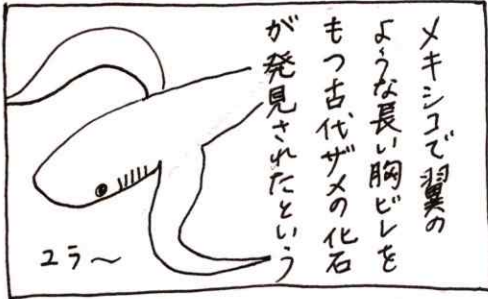 メキシコで翼の
ような長い胸ビレを
もつ古代ザメの化石
が発見されたという
ユラ〜